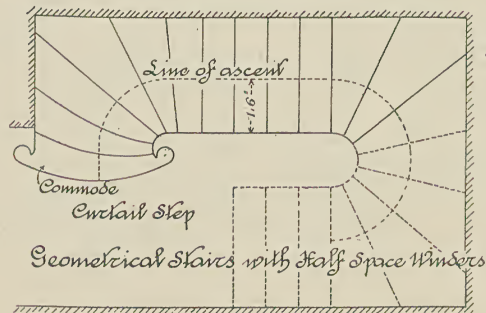 Line of ascent
1.6"
Commode
Curtail Step
Geometrical Stairs with Half Space Winders